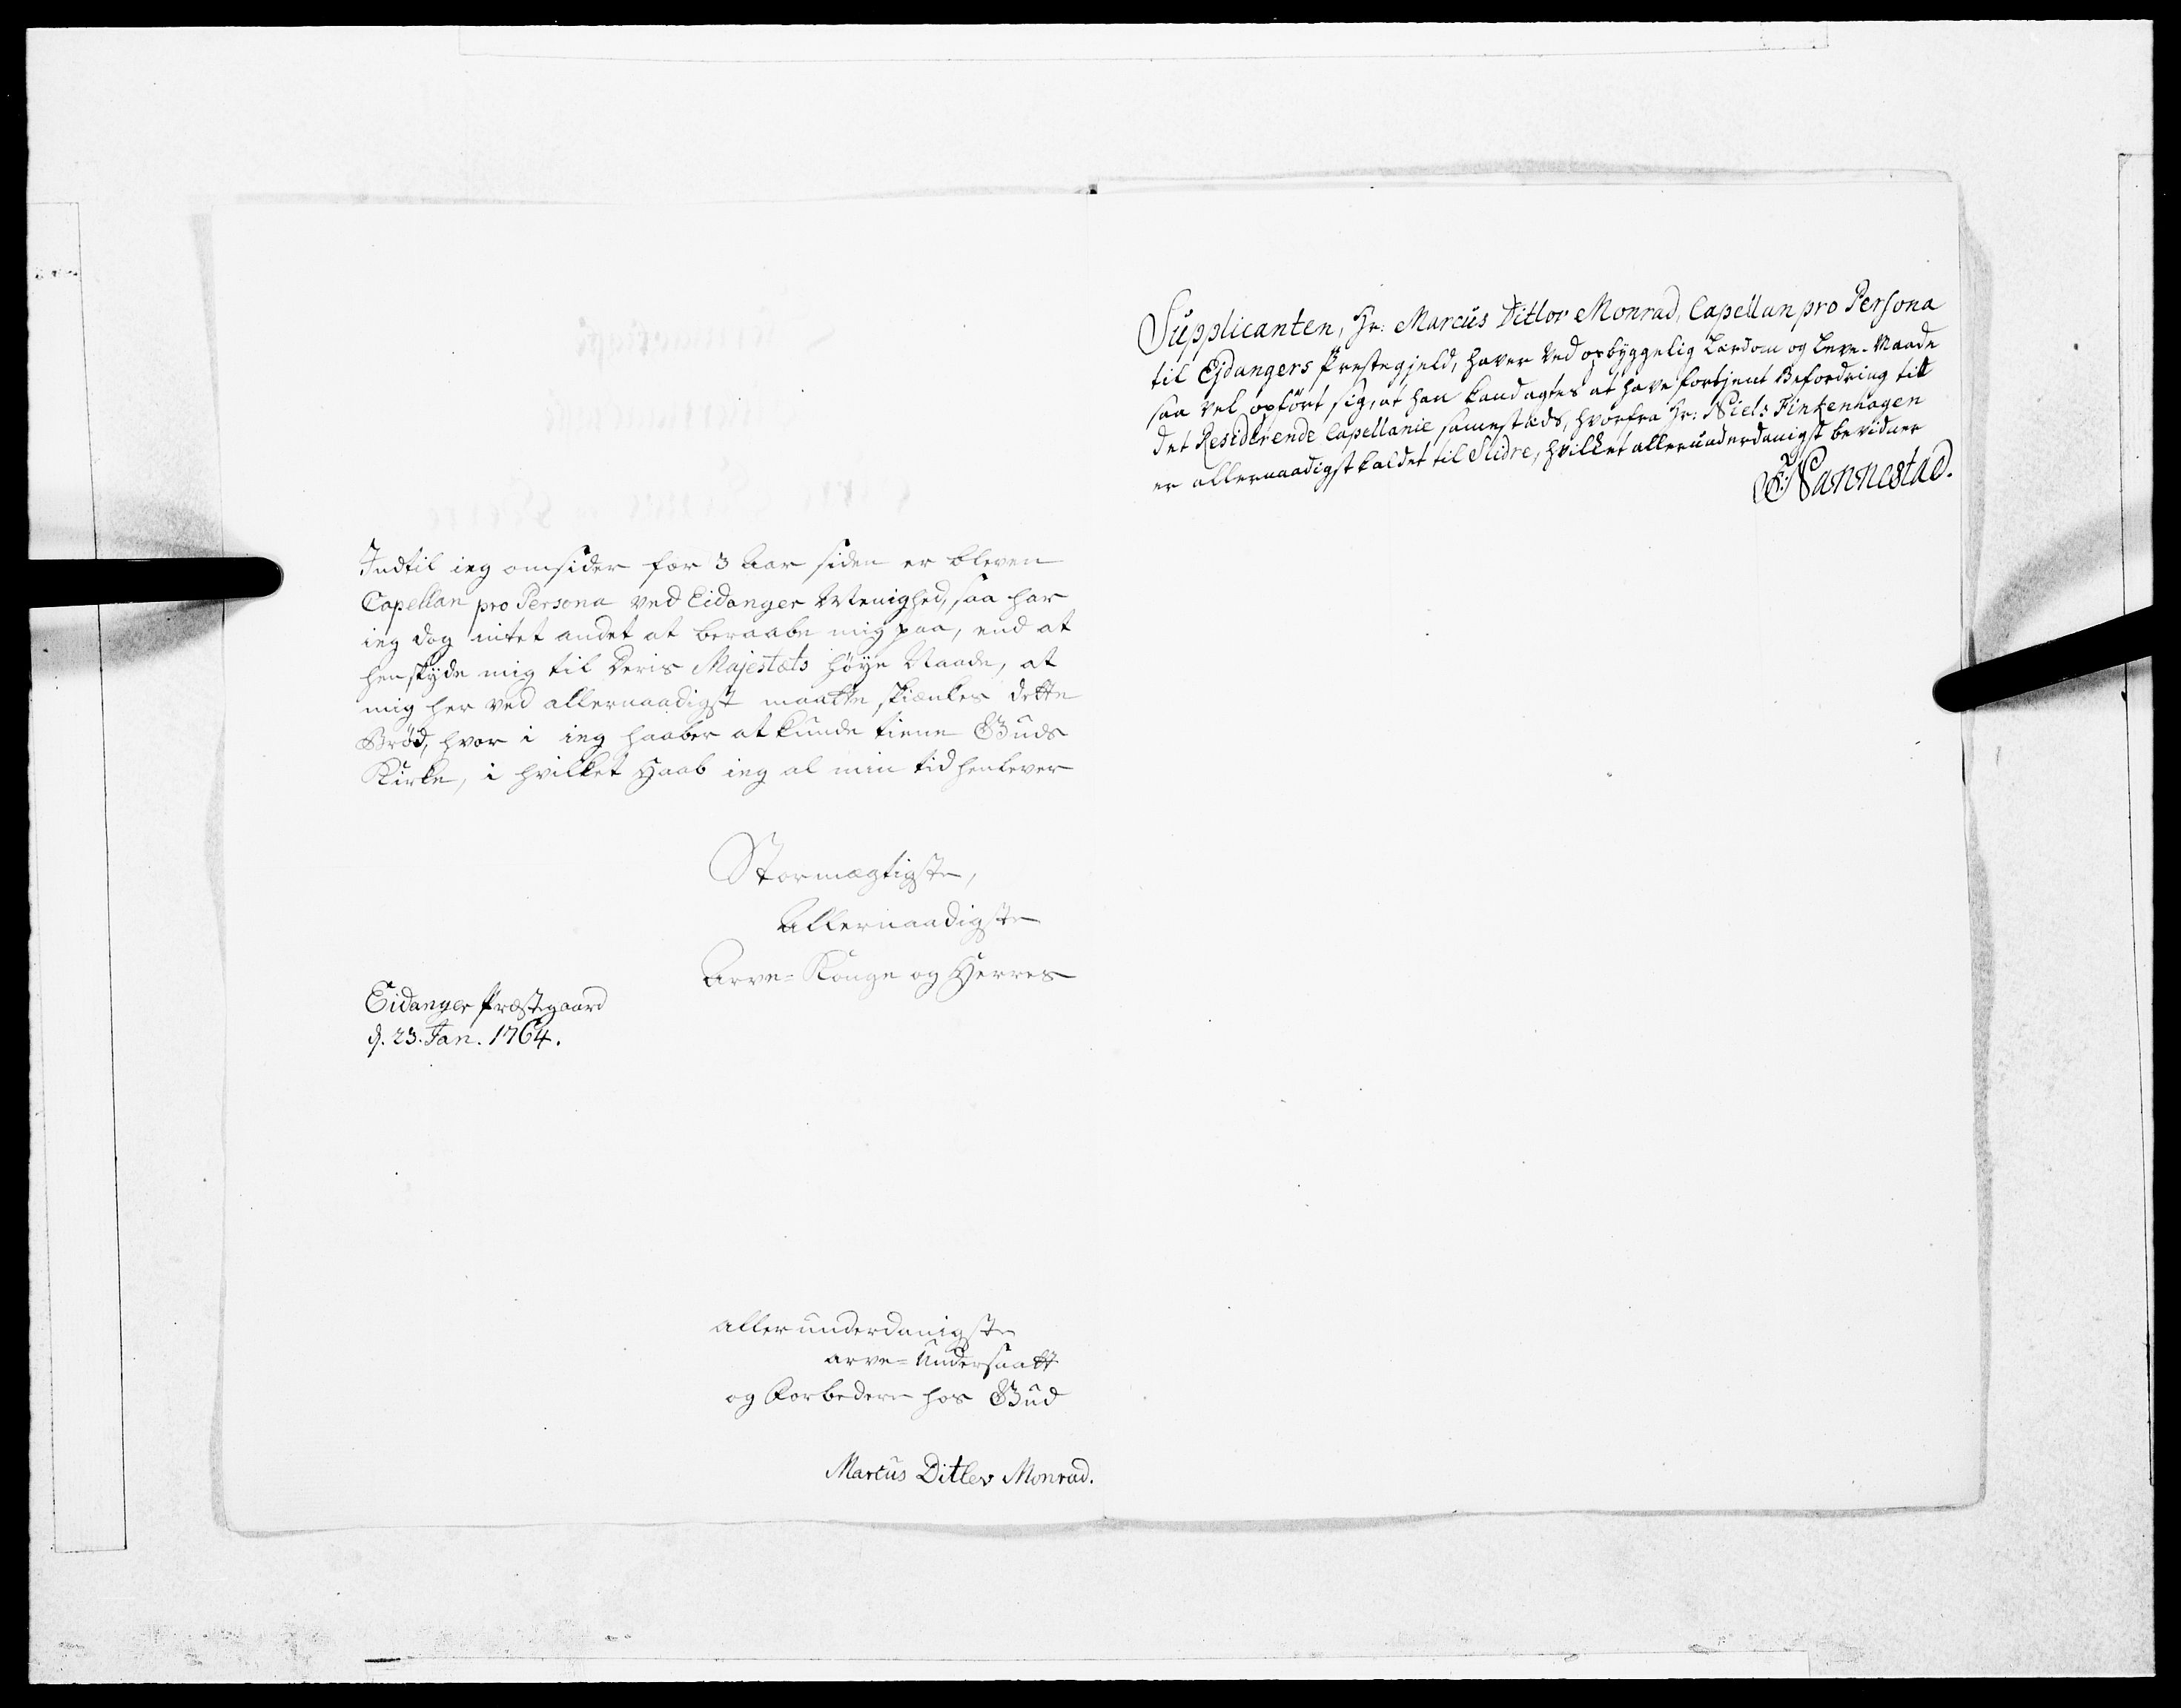 Indtil ieg omsider for 3 Aar siden er bleven
Capellan pro Persona ved Eidanger Menighed, saa har
ieg dog intet andet at beraabe mig paa, end at
henskyde mig til Deris Majestæts høye Naade, at
mig her ved allernaadigst maatte skiænkes dette
Brød, hvor i ieg haaber at kunde tiene Guds
Kirke, i hvilket Haab ieg al min tid henlever
Stormægtigste,
Allernaadigste
Arve=Konge og Herres
Eidanger Præstegaard
d. 23. Jan. 1764.
allerunderdanigste
arve=Undersaatt
og Forbedere hos Gud
Marcus Ditlev Monrad.
Supplicanten, Hr: Marcus Ditlov Monrad, Capellan pro Persona
til Ejdangers Prestegjeld, haver ved opbyggelig Lærdom og Leve-Maade
saa vel opført sig, at han kand agtes at have fortjent Befordring til
det Residerende Capellanie samestæds, hvorfra Hr: Niels Finkenhagen
er allernaadigst kaldet til Slidre, hvilket allerunderdanigst bevidner
F: Nannestad.